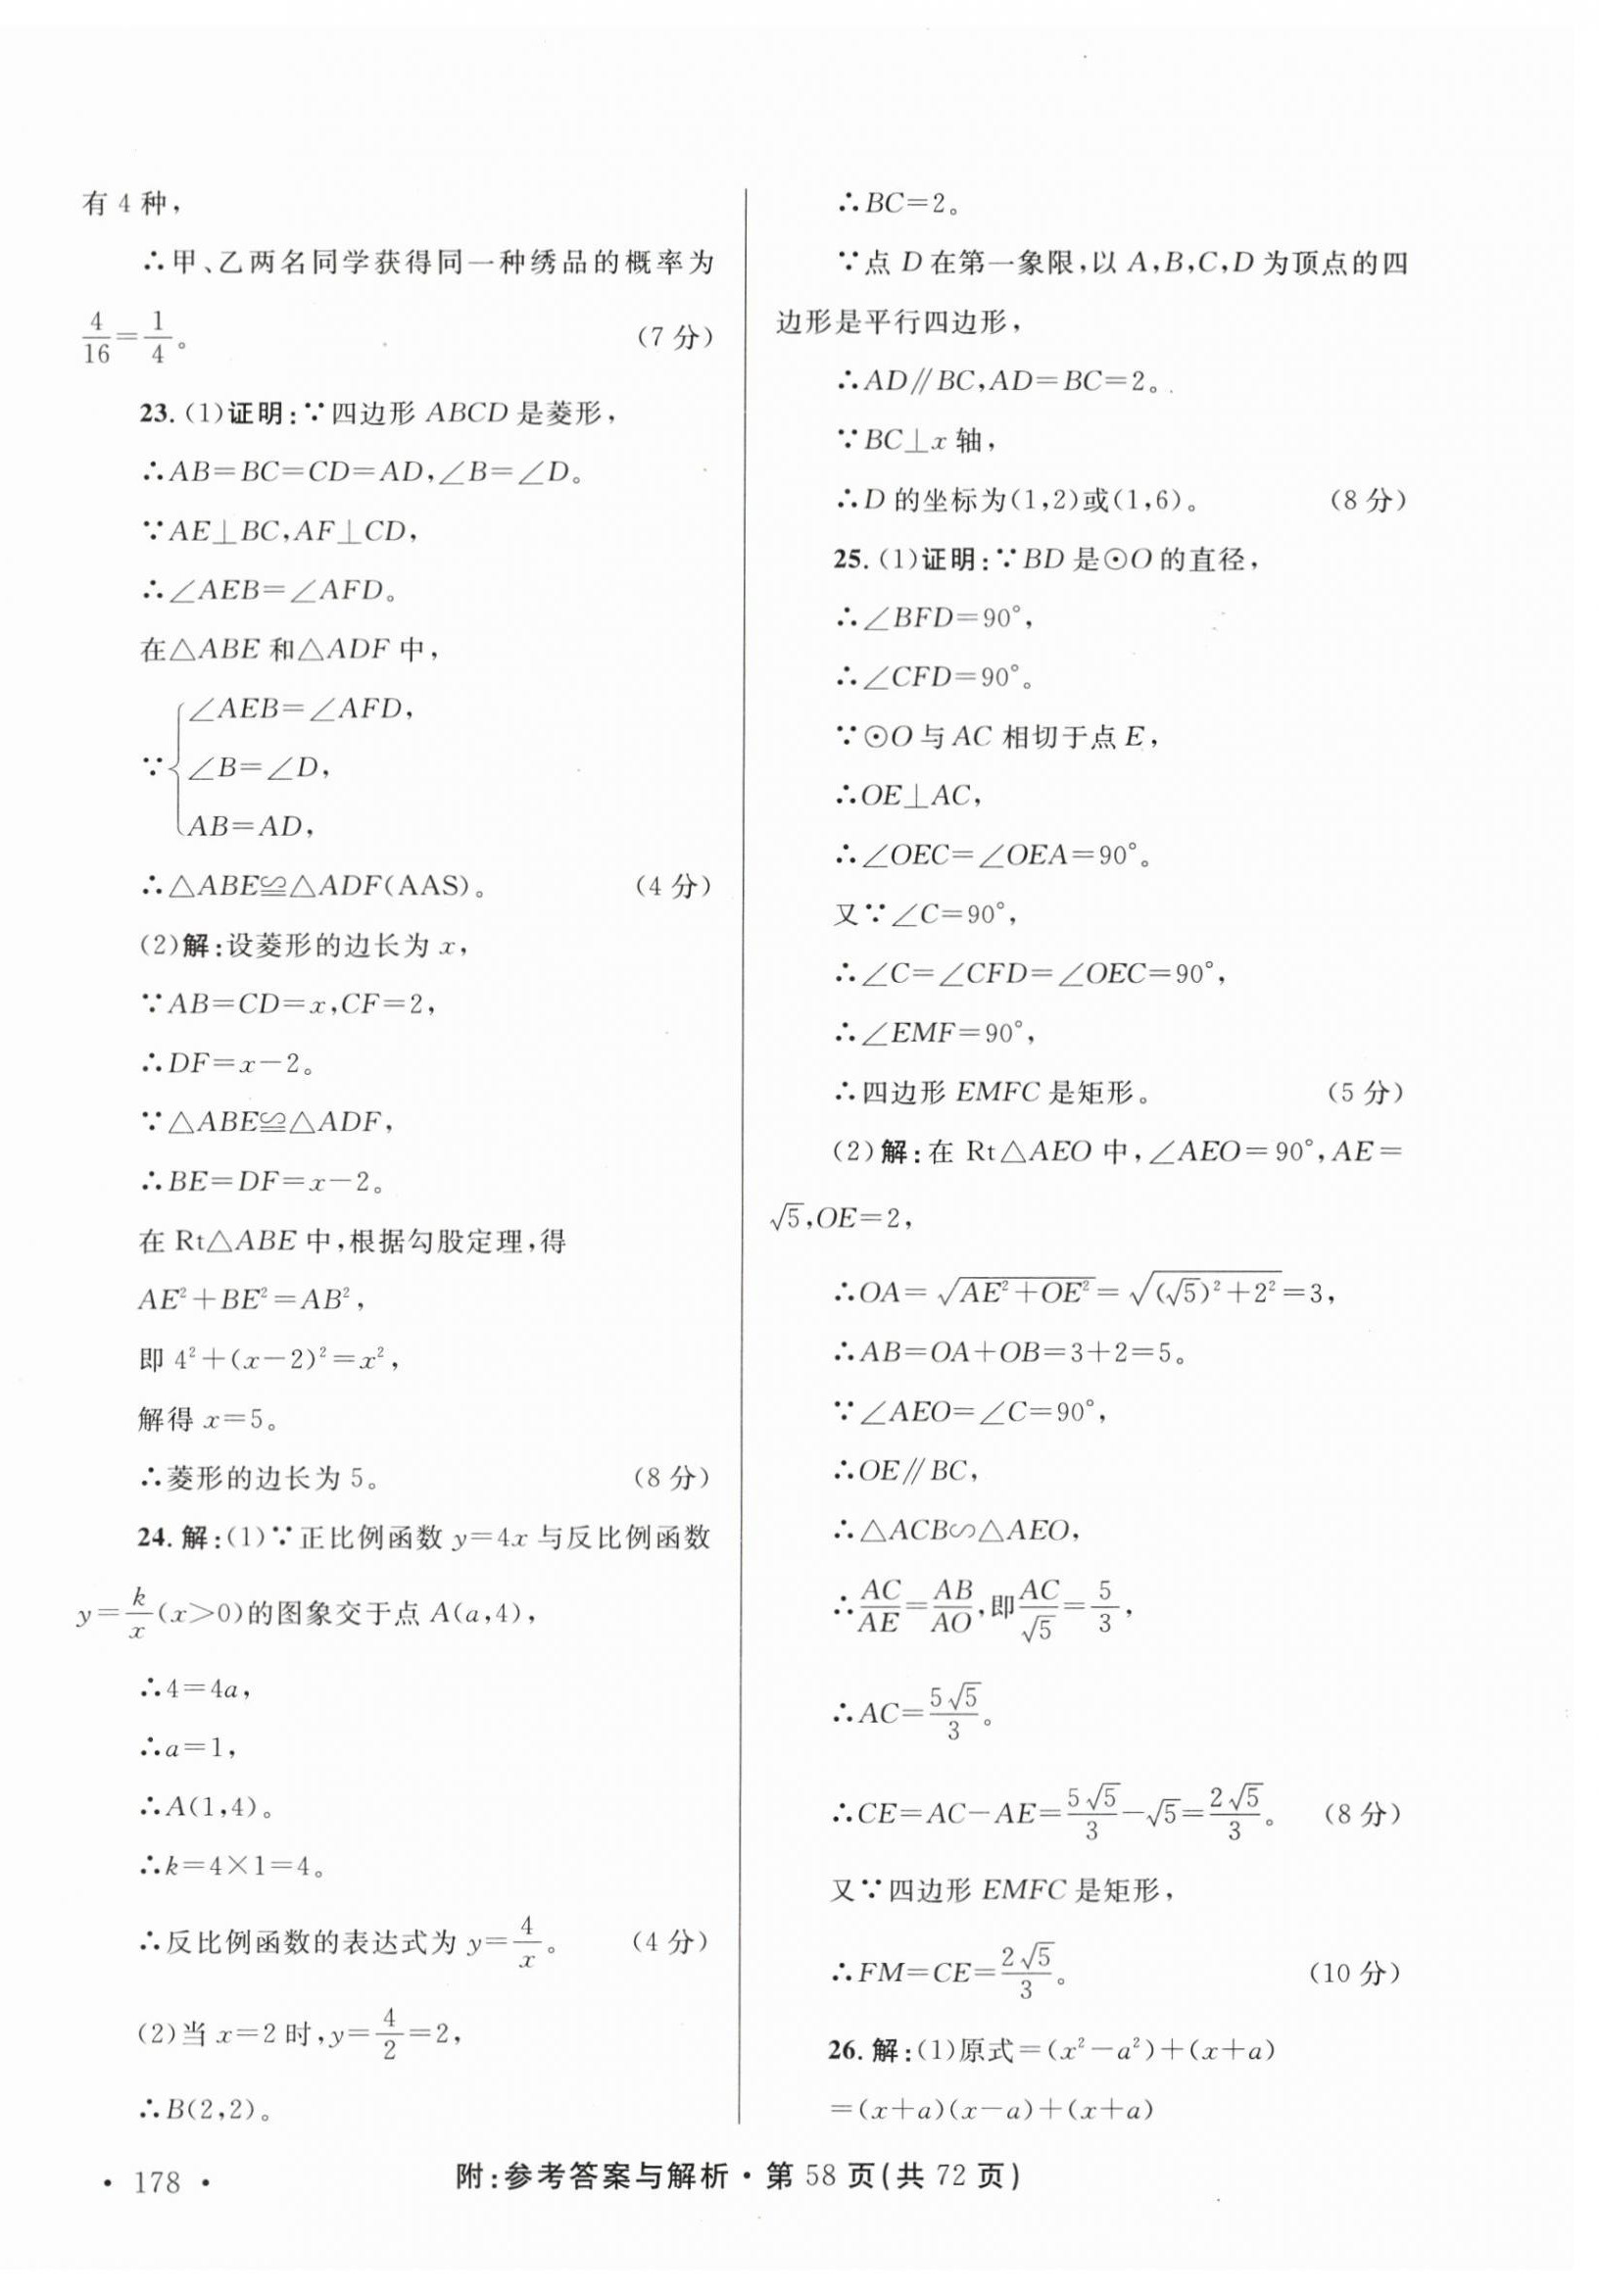 有 4 种，
∴甲、乙两名同学获得同一种绣品的概率为
4/16=1/4。 (7 分)
23. (1)证明:∵四边形 ABCD 是菱形，
∴AB=BC=CD=AD,∠B=∠D。
∵AE⊥BC,AF⊥CD,
∴∠AEB=∠AFD。
在△ABE 和△ADF 中，
∠AEB=∠AFD,
∵{∠B=∠D,
AB=AD,
∴△ABE≌△ADF(AAS)。 (4 分)
(2)解:设菱形的边长为 x,
∵AB=CD=x,CF=2,
∴DF=x-2。
∵△ABE≌△ADF,
∴BE=DF=x-2。
在 Rt△ABE 中,根据勾股定理,得
AE²+BE²=AB²,
即 4²+(x-2)²=x²,
解得 x=5。
∴菱形的边长为 5。 (8 分)
24. 解:(1)∵正比例函数 y=4x 与反比例函数
y=k/x(x>0)的图象交于点 A(a,4),
∴4=4a,
∴a=1,
∴A(1,4)。
∴k=4×1=4。
∴反比例函数的表达式为 y=4/x。 (4 分)
(2)当 x=2 时,y=4/2=2,
∴B(2,2)。
∴BC=2。
∵点 D 在第一象限,以 A,B,C,D 为顶点的四
边形是平行四边形，
∴AD∥BC,AD=BC=2。
∵BC⊥x 轴，
∴D 的坐标为(1,2)或(1,6)。 (8 分)
25. (1)证明:∵BD 是⊙O 的直径，
∴∠BFD=90°,
∴∠CFD=90°。
∵⊙O 与 AC 相切于点 E,
∴OE⊥AC,
∴∠OEC=∠OEA=90°。
又∵∠C=90°,
∴∠C=∠CFD=∠OEC=90°,
∴∠EMF=90°,
∴四边形 EMFC 是矩形。 (5 分)
(2)解:在 Rt△AEO 中,∠AEO=90°,AE=
√5,OE=2,
∴OA=√(AE²+OE²)=√((√5)²+2²)=3,
∴AB=OA+OB=3+2=5。
∵∠AEO=∠C=90°,
∴OE∥BC,
∴△ACB∽△AEO,
∴AC/AE=AB/AO,即AC/√5=5/3,
∴AC=5√5/3。
∴CE=AC-AE=5√5/3-√5=2√5/3。 (8 分)
又∵四边形 EMFC 是矩形，
∴FM=CE=2√5/3。 (10 分)
26. 解:(1)原式=(x²-a²)+(x+a)
=(x+a)(x-a)+(x+a)
• 178 • 附:参考答案与解析·第 58 页(共 72 页)